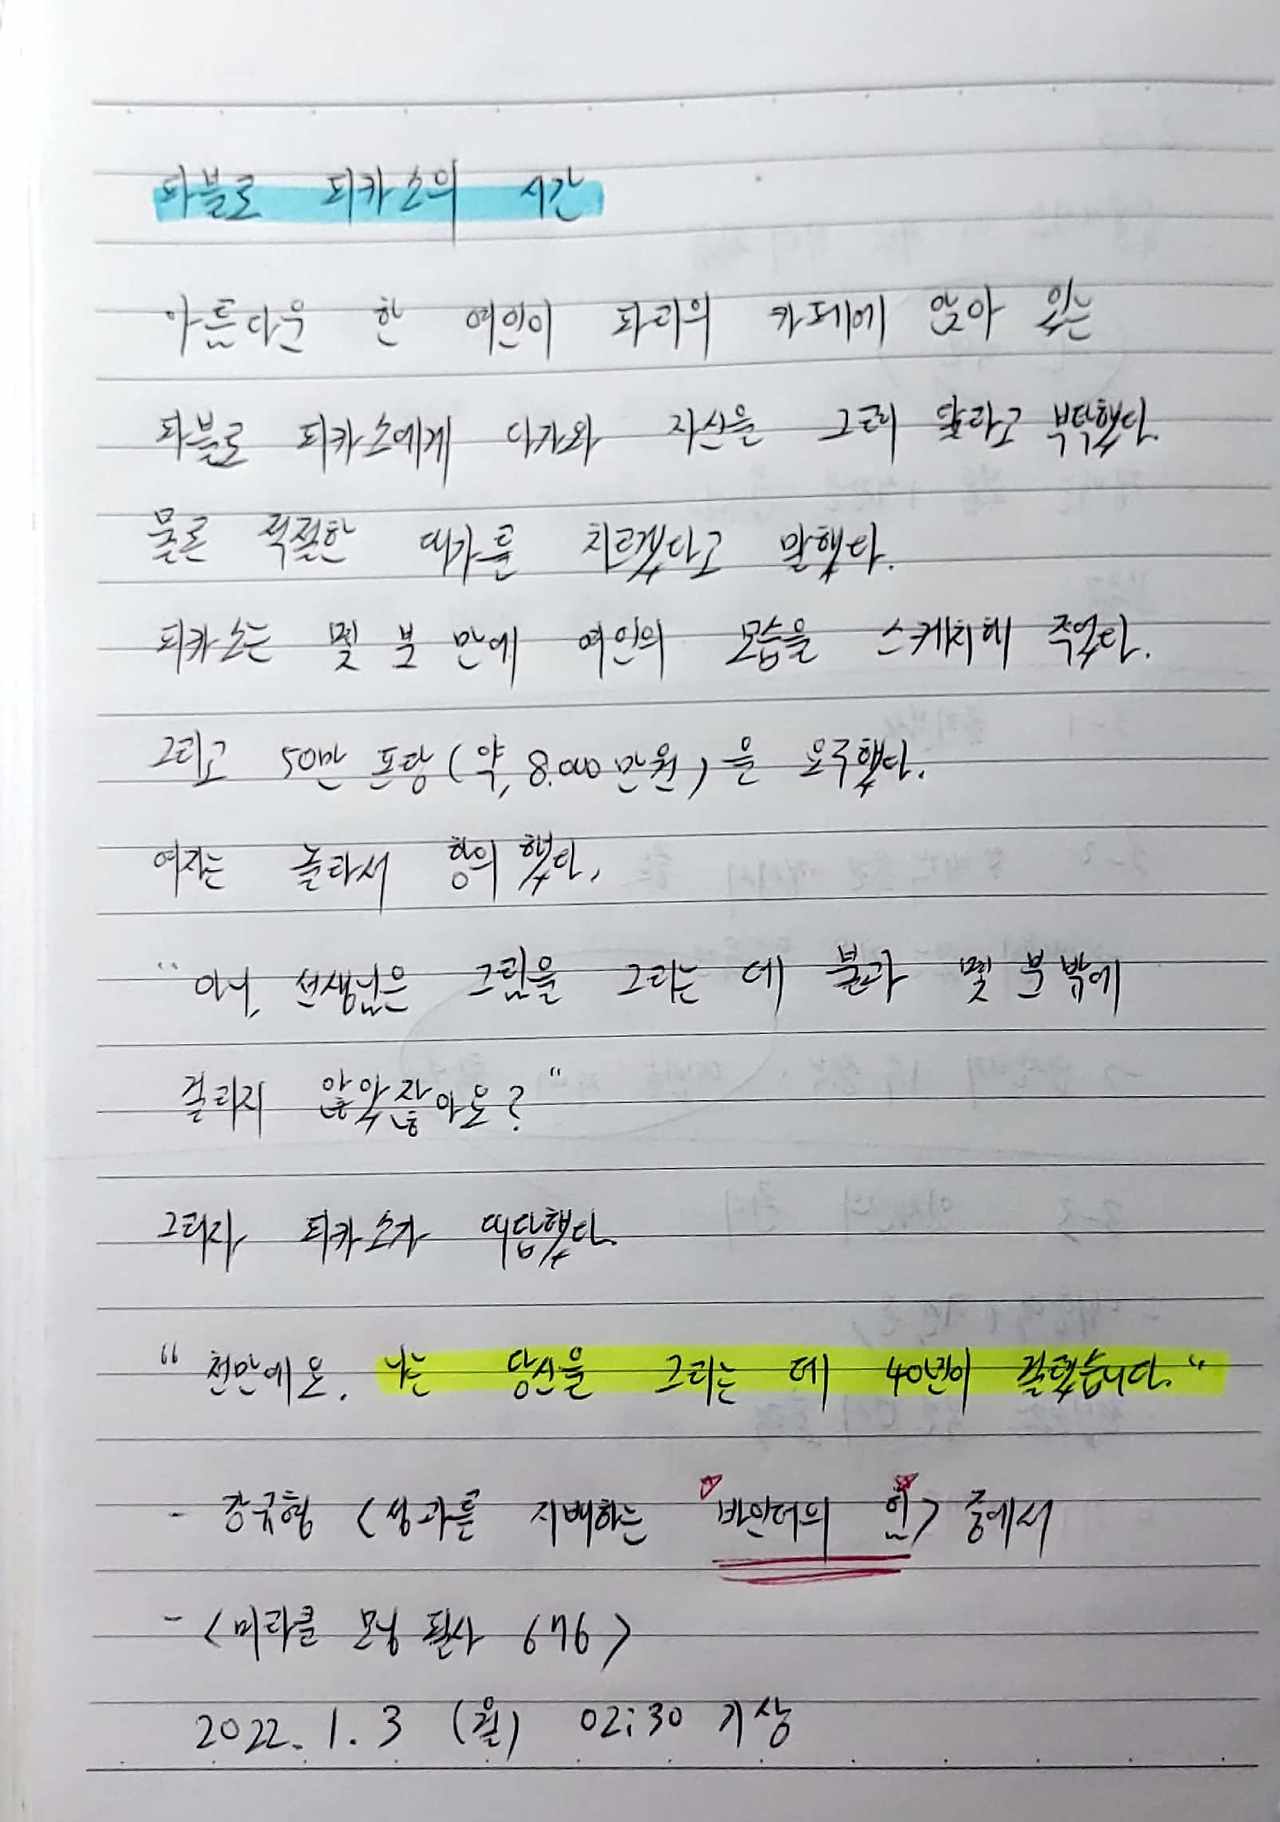 파블로 피카소의 시간
아름다운 한 여인이 파리의 카페에 앉아 있는
파블로 피카소에게 다가와 자신을 그려 달라고 부탁했다.
물론 적절한 대가를 치르겠다고 말했다.
피카소는 몇 분 만에 여인의 모습을 스케치해 주었다.
그리고 50만 프랑(약, 8.000만원)을 요구했다.
여자는 놀라서 항의했다,
"아니, 선생님은 그림을 그리는 데 불과 몇 분밖에
걸리지 않았잖아요?"
그러자 피카소가 대답했다.
"천만에요. 나는 당신을 그리는 데 40년이 걸렸습니다."
- 강규형 <성과를 지배하는 바인더의 힘> 중에서
- <미라클 모닝 필사 676>
2022. 1. 3 (월) 02:30 기상